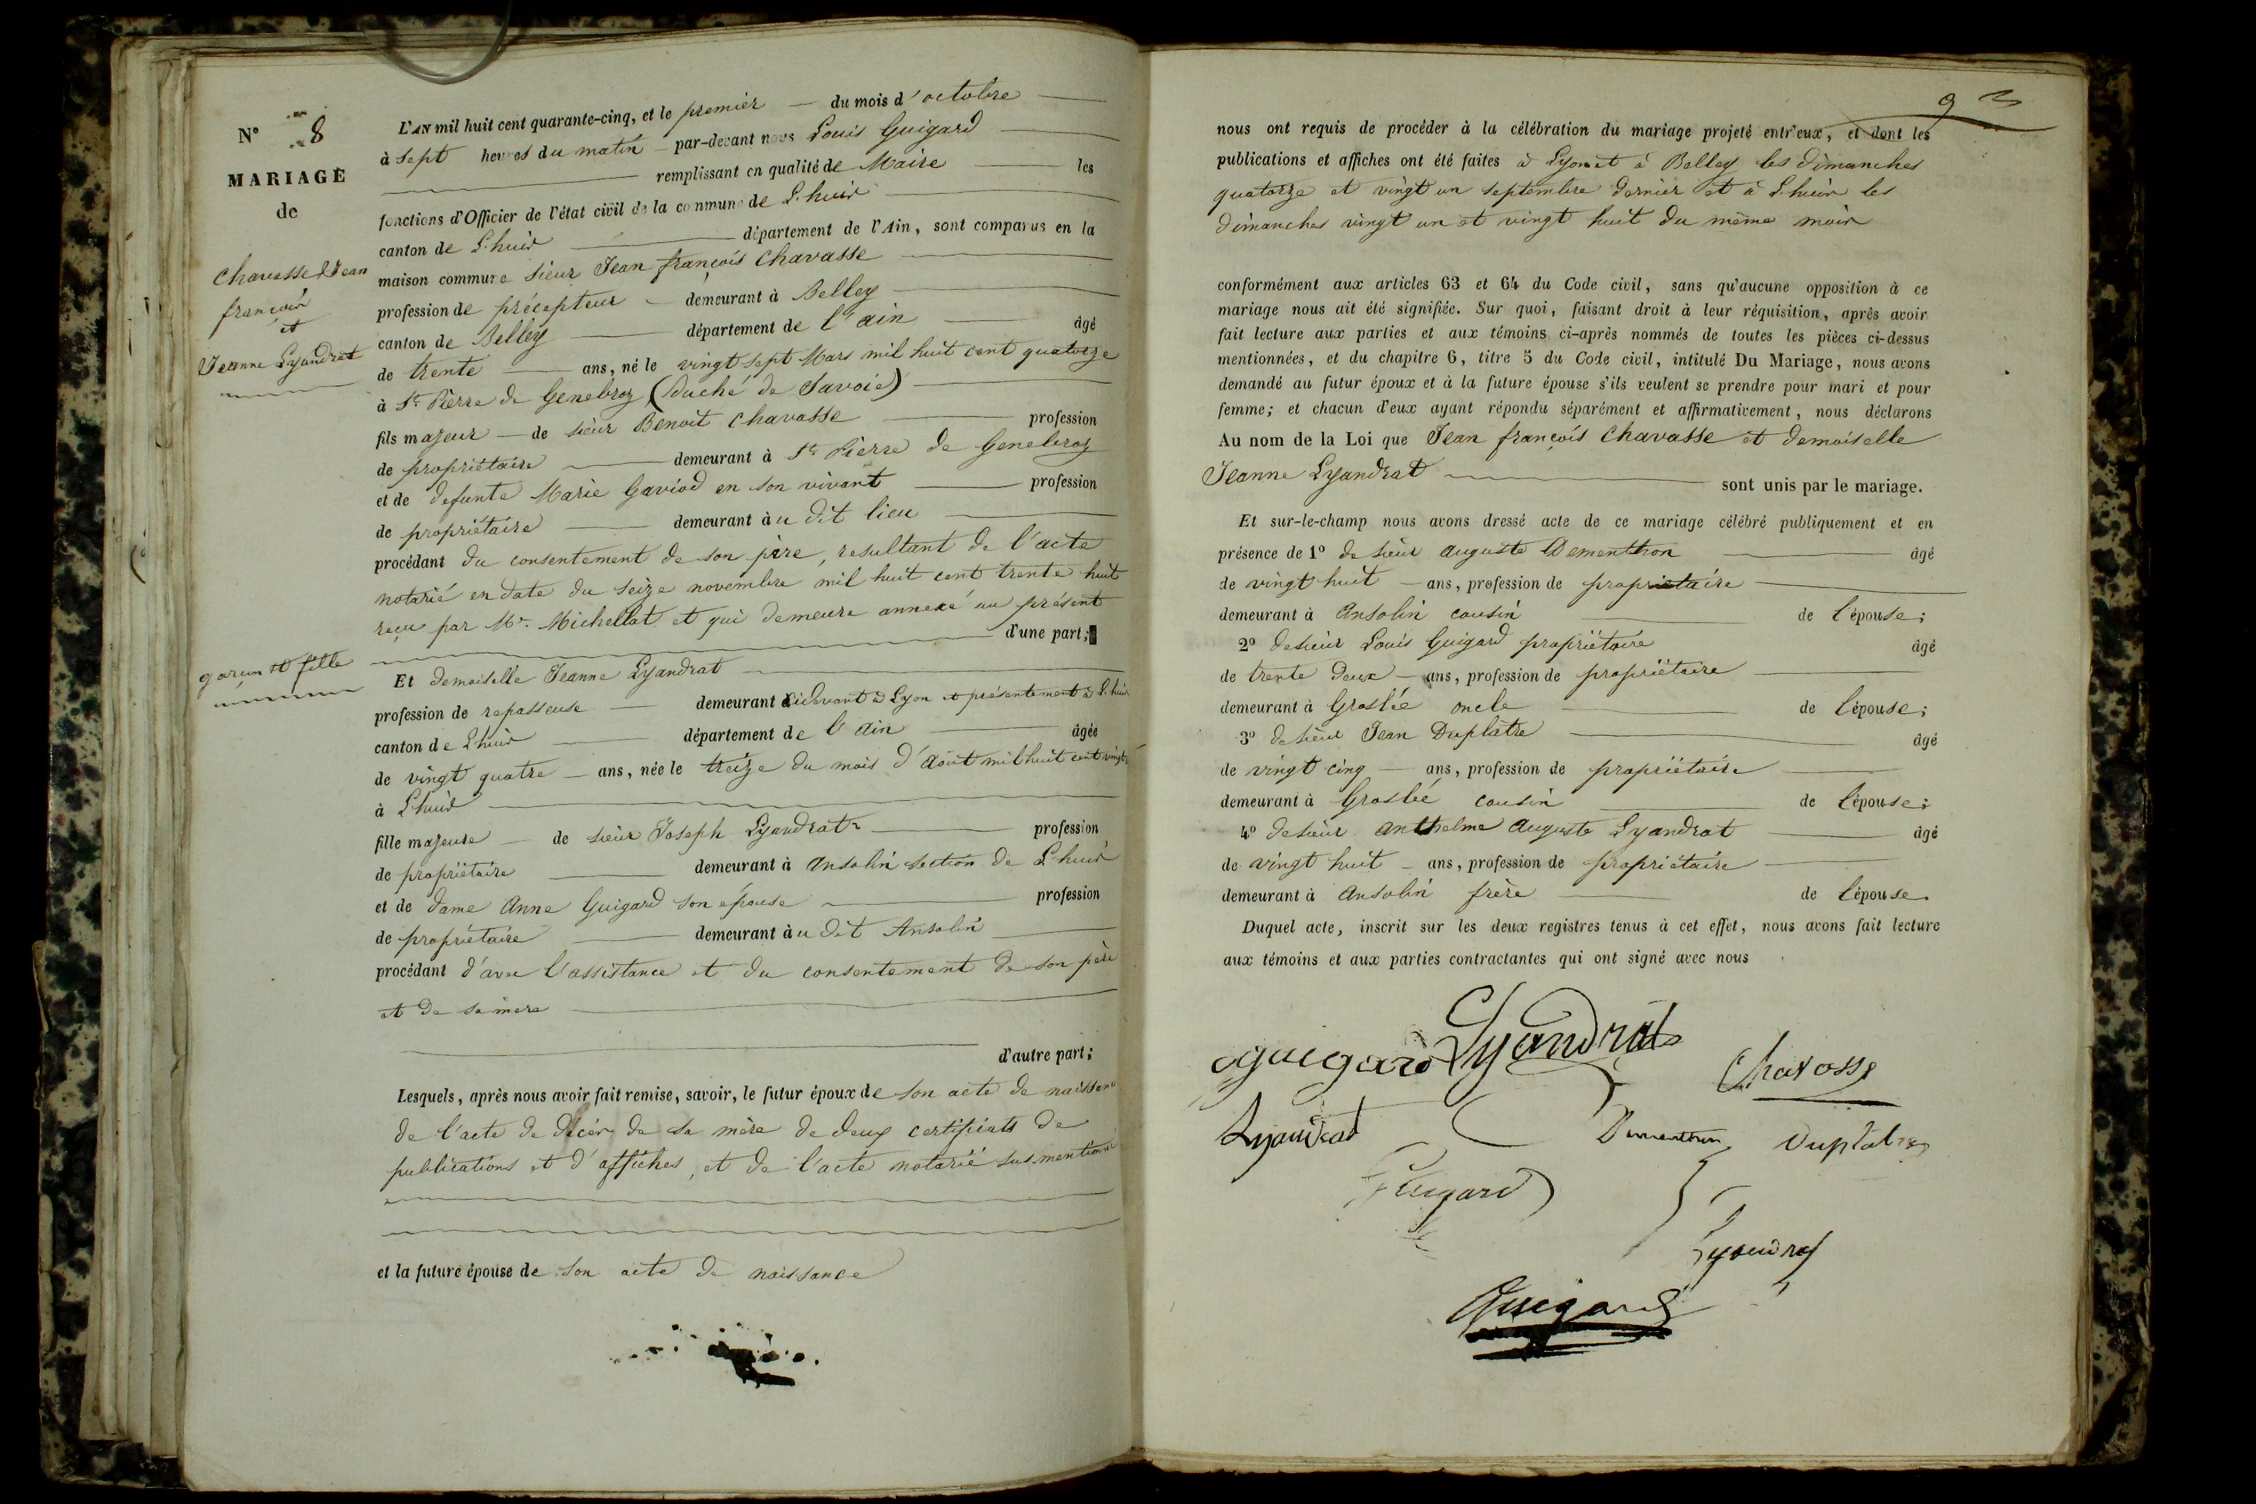 N° 8
MARIAGE
de
Chavasse Jean
françois
et
Jeanne Lyandrat
garçon et fille
L'AN mil huit cent quarante-cinq, et le premier du mois d'octobre
à sept heures du matin par-devant nous Louis Guigard
remplissant en qualité de Maire les
fonctions d'Officier de l'état civil de la commune de L'huis
canton de L'huis département de l'Ain, sont comparus en la
maison commune sieur Jean françois Chavasse
profession de précepteur demeurant à Belley
canton de Belley département de l'ain âgé
de trente ans, né le vingt sept Mars mil huit cent quatorze
à St. Pierre de Genebroz (Duché de Savoie)
fils majeur de sieur Benoit Chavasse profession
de propriétaire demeurant à St. Pierre de Genebroz
et de defunte Marie Gaviod en son vivant profession
de propriétaire demeurant àu dit lieu
procédant du consentement de son père, resultant de l'acte
notarié en date du seize novembre mil huit cent trente huit
reçu par Mr. Michellat et qui demeure annexé au présent
d'une part;
Et demoiselle Jeanne Lyandrat
profession de repasseuse demeurant cidevant à Lyon et présentement à L'huis
canton de L'huis département de l'ain âgée
de vingt quatre ans, née le treize du mois d'Août mil huit cent vingt
à L'huis
fille majeure de sieur Joseph Lyandrat profession
de propriétaire demeurant à Ansolin section de L'huis
et de dame Anne Guigard son épouse profession
de propriétaire demeurant àu dit Ansolin
procédant d'avec l'assistance et du consentement de son père
et de sa mère
d'autre part;
Lesquels, après nous avoir fait remise, savoir, le futur époux de son acte de naissance
de l'acte de décès de sa mère de deux certificats de
publications et d'affiches, et de l'acte notarié sus mentionné
et la future épouse de son acte de naissance
9
nous ont requis de procéder à la célébration du mariage projeté entr'eux, et dont les
publications et affiches ont été faites à Lyon et à Belley les dimanches
quatorze et vingt un septembre dernier et à L'huis les
dimanches vingt un et vingt huit du même mois
conformément aux articles 63 et 64 du Code civil, sans qu'aucune opposition à ce
mariage nous ait été signifiée. Sur quoi, faisant droit à leur réquisition, après avoir
fait lecture aux parties et aux témoins ci-après nommés de toutes les pièces ci-dessus
mentionnées, et du chapitre 6, titre 5 du Code civil, intitulé Du Mariage, nous avons
demandé au futur époux et à la future épouse s'ils veulent se prendre pour mari et pour
femme; et chacun d'eux ayant répondu séparément et affirmativement, nous déclarons
Au nom de la Loi que Jean françois Chavasse et demoiselle
Jeanne Lyandrat sont unis par le mariage.
Et sur-le-champ nous avons dressé acte de ce mariage célébré publiquement et en
présence de 1° de sieur auguste Dementhon âgé
de vingt huit ans, profession de propriétaire
demeurant à Ansolin cousin de l'épouse;
2° de sieur Louis Guigard propriétaire âgé
de trente deux ans, profession de propriétaire
demeurant à Groslée oncle de l'épouse;
3° de sieur Jean Duplatre âgé
de vingt cinq ans, profession de propriétaire
demeurant à Groslée cousin de l'épouse;
4° de sieur anthelme auguste Lyandrat âgé
de vingt huit ans, profession de propriétaire
demeurant à Ansolin frère de l'épouse
Duquel acte, inscrit sur les deux registres tenus à cet effet, nous avons fait lecture
aux témoins et aux parties contractantes qui ont signé avec nous
aguigard Lyandrat Chavasse
Lyandrat Dementhon Duplatre
Guigard
Lyandrat
Guigard